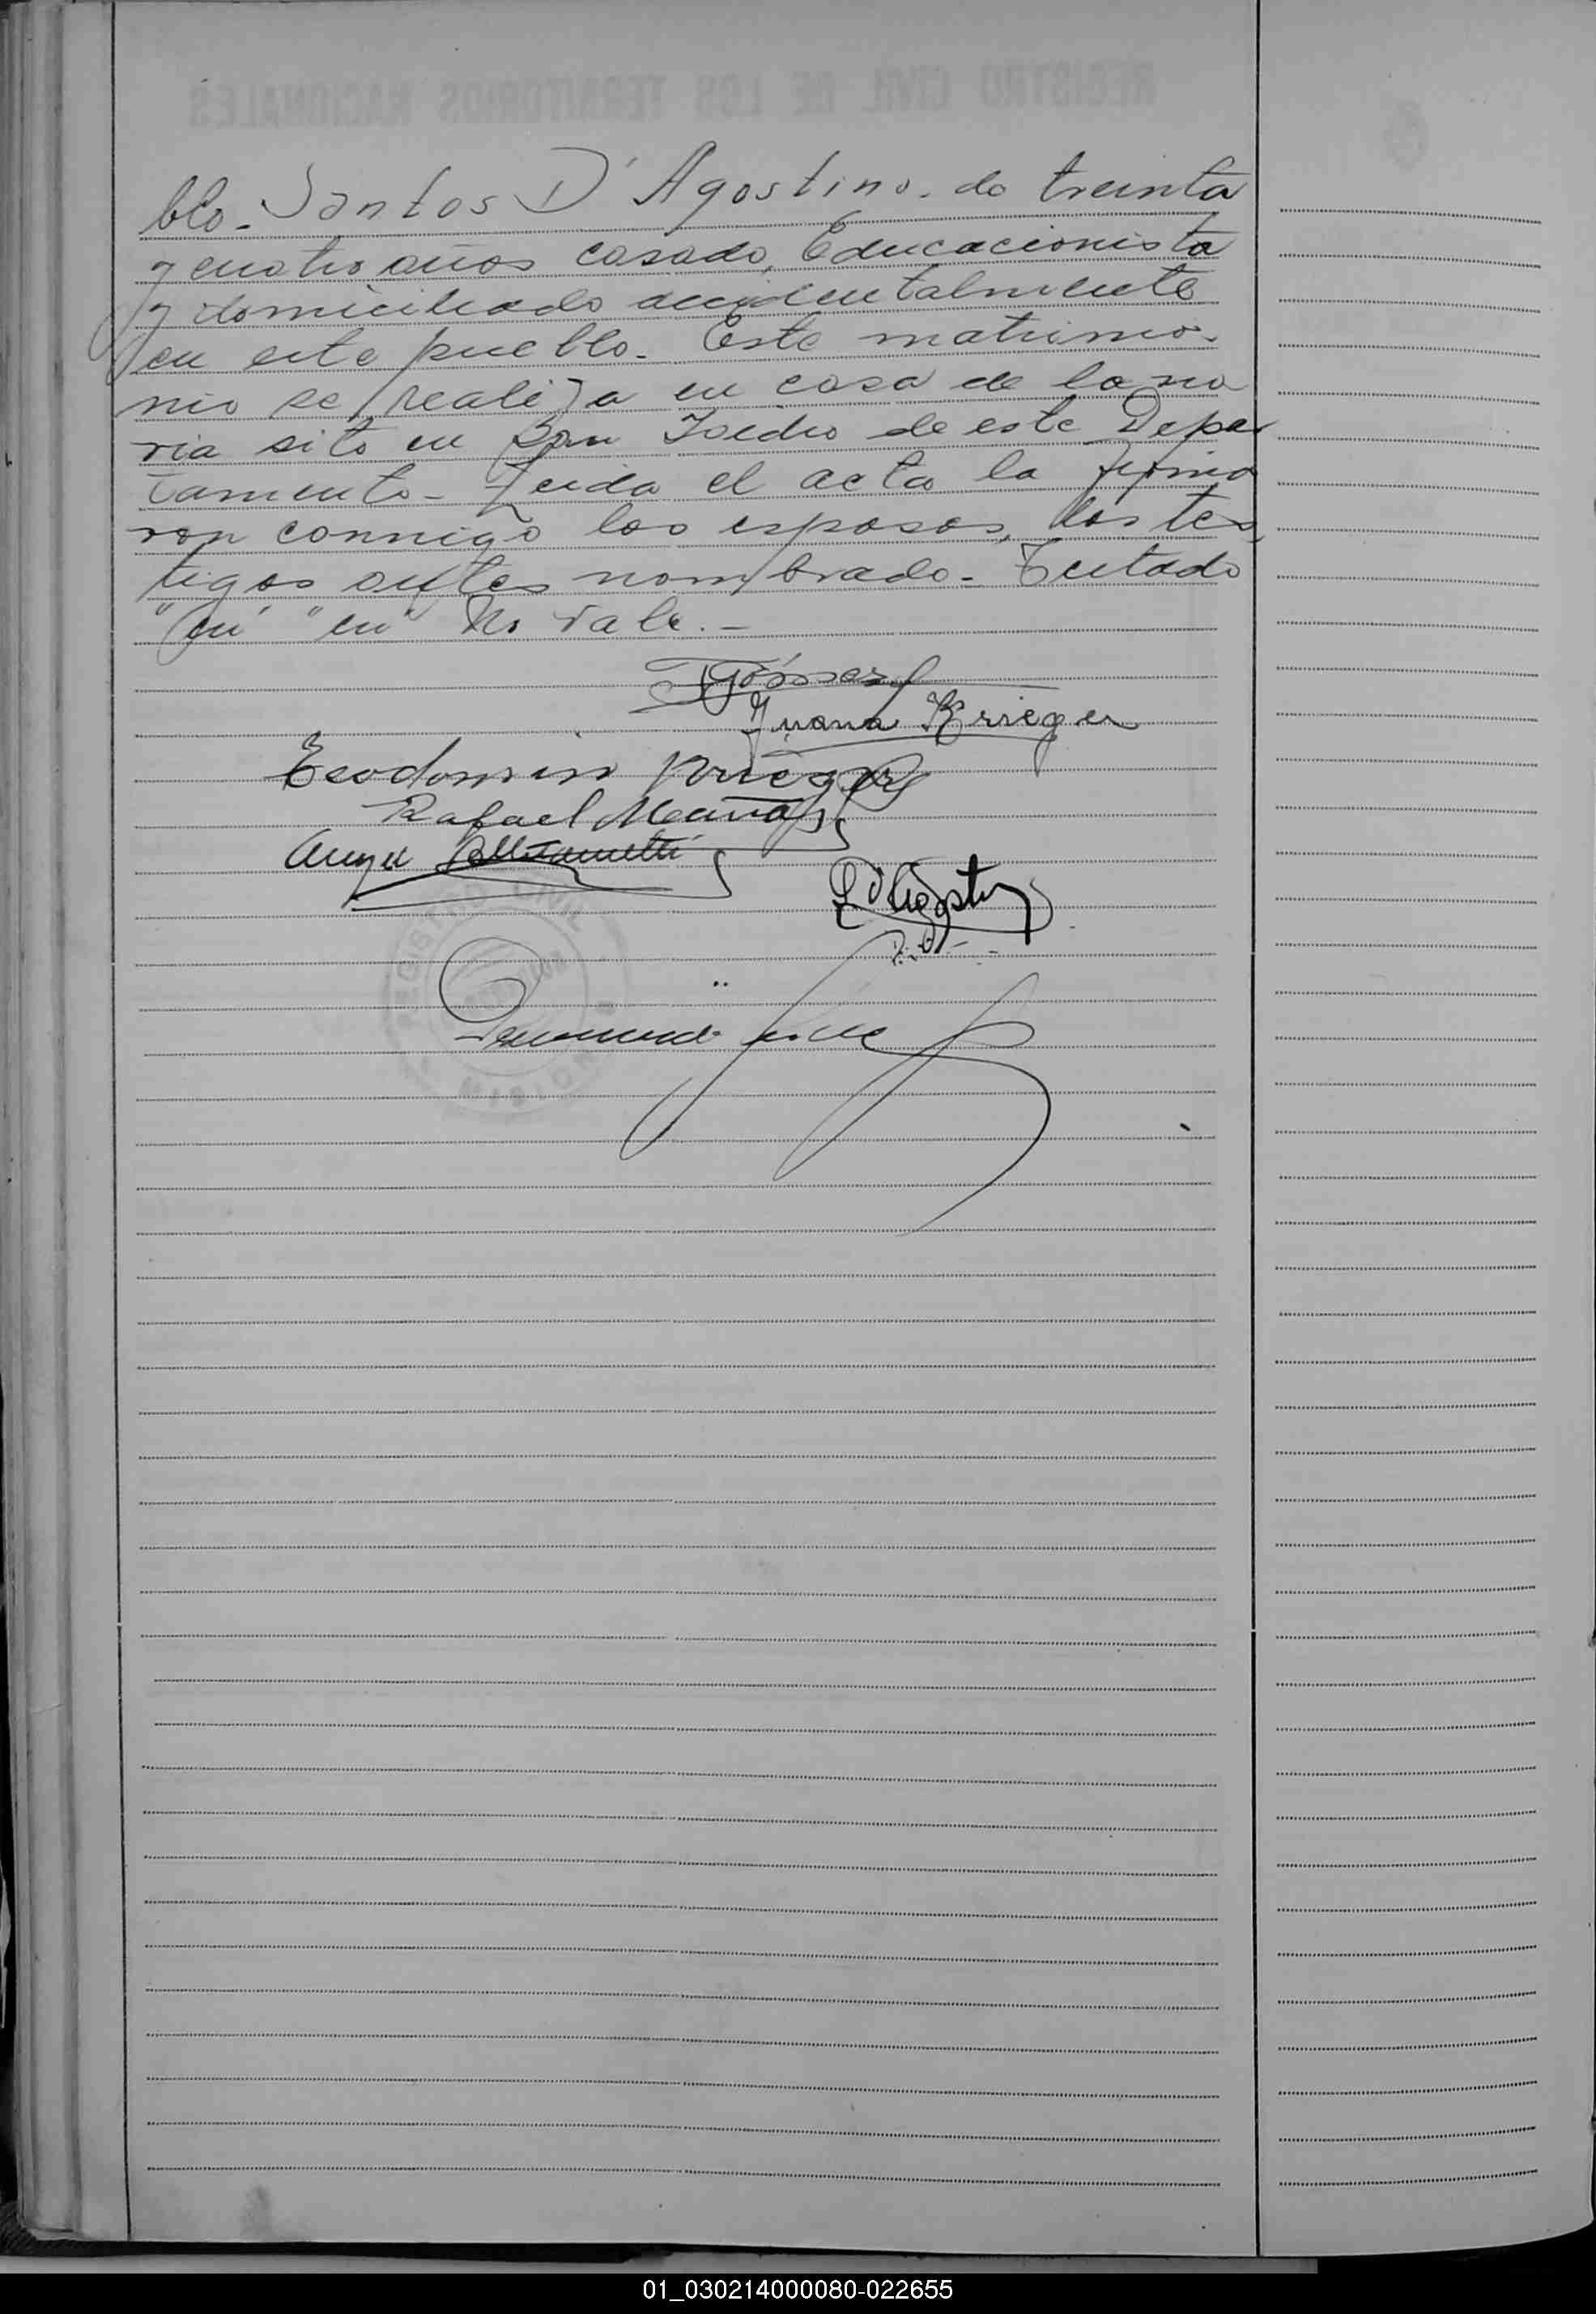 blo. Santos D'Agostino. de treinta
y cuatro años casado, Educacionista
y domiciliado accidentalmente
en este pueblo. Este matrimo-
nio se realiza en casa de la no
via sito en San Isidro de este Depar
tamento- Leida el acta la firma
ron conmigo los esposos, los tes
tigos antes nombrado- Testado
"en" "en" No vale.-
Juana Krieger
Teodomiro Krieger
Rafael
Angel
REGISTRO CIVIL
MISIONES
01_030214000080-022655